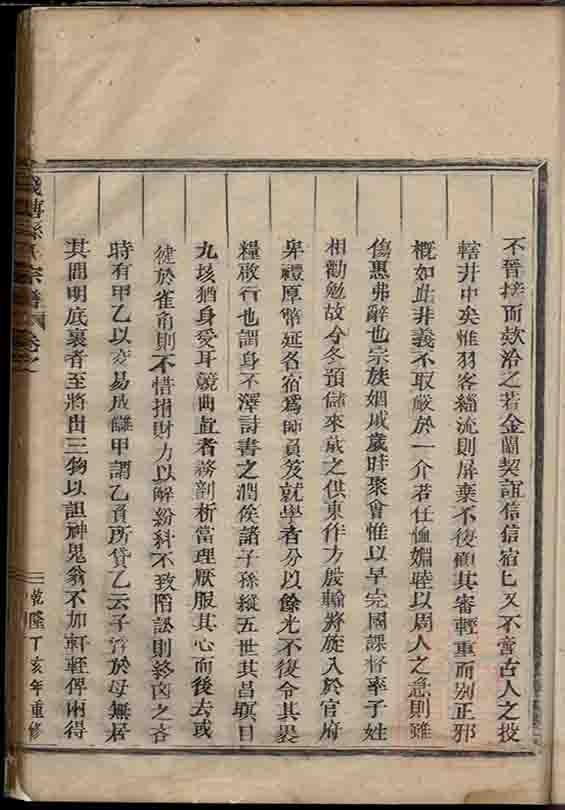 不啻搓而欵洽之若金蘭契誼信信宿匕又不啻古人之投
轄井中矣惟羽客緇流則屏棄不復顧其審輕重而别正邪
概如此非義不取嚴於一介若任恤婣睦以周人之急則雖
傷惠弗辭也宗族姻戚歲時聚會惟以早完國課督率子姓
相勸勉故今冬預儲來歲之供東作方殷輸將旋入於官府
卑禮厚幣延名宿爲師負笈就學者分以餘光不復令其褁
糧敢行也謂身不澤詩書之潤俟諸子孫縱五世其昌瞑目
九垓猶身受耳競曲直者務剖析當理厭服其心而後去或
健於雀角則不惜捐財力以解紛糾不致陷訟則終凶之吝
時有甲乙以交易成讐甲謂乙負所貸乙云子浮於母無居
其間明底裏者至將出三物以詛神鬼翁不加軒輊俾兩得
錢塘孫氏宗譜 卷之
乾隆丁亥年重修